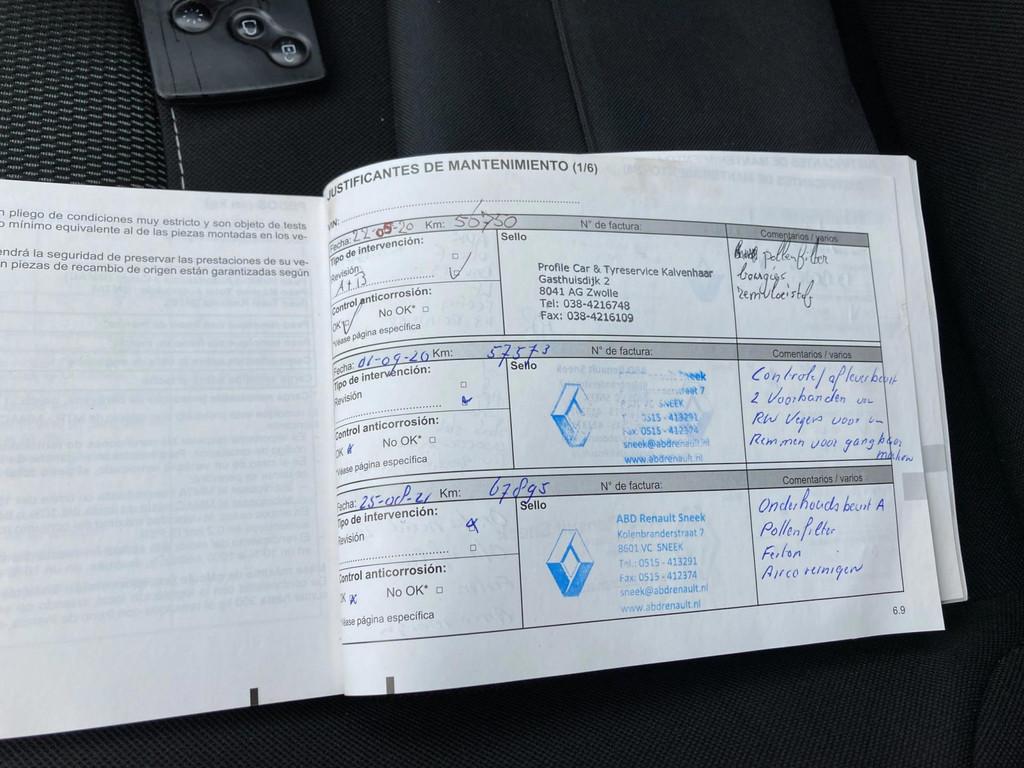 n pliego de condiciones muy estricto y son objeto de tests
o mínimo equivalente al de las piezas montadas en los ve-
endrá la seguridad de preservar las prestaciones de su ve-
n piezas de recambio de origen están garantizadas según
JUSTIFICANTES DE MANTENIMIENTO (1/6)
VIN:
Fecha: 22-05-20 Km: 56730 N° de factura: Comentarios / varios
Tipo de intervención:
Revisión
A + B
Control anticorrosión:
OK No OK*
*Véase página específica
Sello
Profile Car & Tyreservice Kalvenhaar
Gasthuisdijk 2
8041 AG Zwolle
Tel: 038-4216748
Fax: 038-4216109
pollenfilter
bougies
remvloeistof
Fecha: 01-09-20 Km: 57573 N° de factura: Comentarios / varios
Tipo de intervención:
Revisión
Control anticorrosión:
OK x No OK*
*Véase página específica
Sello
Sneek
straat 7
VC SNEEK
0515 - 413291
Fax: 0515 - 412374
sneek@abdrenault.nl
www.abdrenault.nl
Controle/afleverbeurt
2 Voorbanden
RW Vegers voor
Remmen voor gangbaar
maken
Fecha: 25-08-21 Km: 67895 N° de factura: Comentarios / varios
Tipo de intervención:
Revisión
Control anticorrosión:
OK x No OK*
*Véase página específica
Sello
ABD Renault Sneek
Kolenbranderstraat 7
8601 VC SNEEK
Tel.: 0515 - 413291
Fax: 0515 - 412374
sneek@abdrenault.nl
www.abdrenault.nl
Onderhoudsbeurt A
Pollenfilter
Airco reinigen
6.9